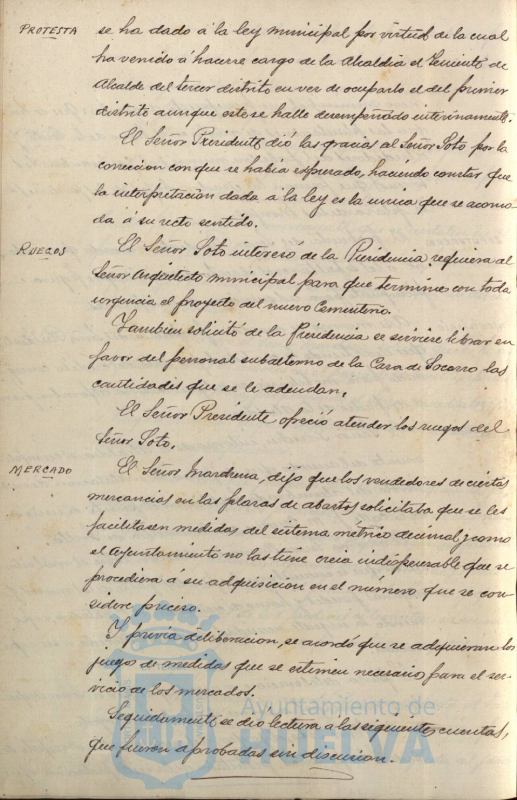 PROTESTA
se ha dado á la ley municipal por virtud de la cual
ha venido á hacerse cargo de la Alcaldia el Teniente de
Alcalde del tercer distrito en vez de ocuparlo el del primer
distrito aunque este se halle desempeñado interinamente.
El Señor Presidente dió las gracias al Señor Soto por la
correccion con que se habia expresado, haciendo constar que
la interpretación dada á la ley es la unica que se acomo
da á su recto sentido.
RUEGOS
El Señor Soto interesó de la Presidencia requiera al
Señor Arquitecto municipal para que termine con toda
urgencia el proyecto del nuevo Cementerio.
Tambien solicitó de la Presidencia se sirviere librar en
favor del personal subalterno de la Casa de Socorro las
cantidades que se le adeudan.
El Señor Presidente ofreció atender los ruegos del
Señor Soto.
MERCADO
El Señor Marchena, dijo que los vendedores de ciertas
mercancias en las plazas de abastos solicitaba que se les
facilitasen medidas del sistema métrico decimal y como
el Ayuntamiento no las tiene creia indispensable que se
procediera á su adquisicion en el número que se con-
sidere preciso.
Y previa deliberacion, se acordó que se adquieran los
juegos de medidas que se estimen necesario para el ser-
vicio de los mercados.
Seguidamente se dió lectura a las siguientes cuentas,
que fueron aprobadas sin discusion.
Ayuntamiento de
HUELVA